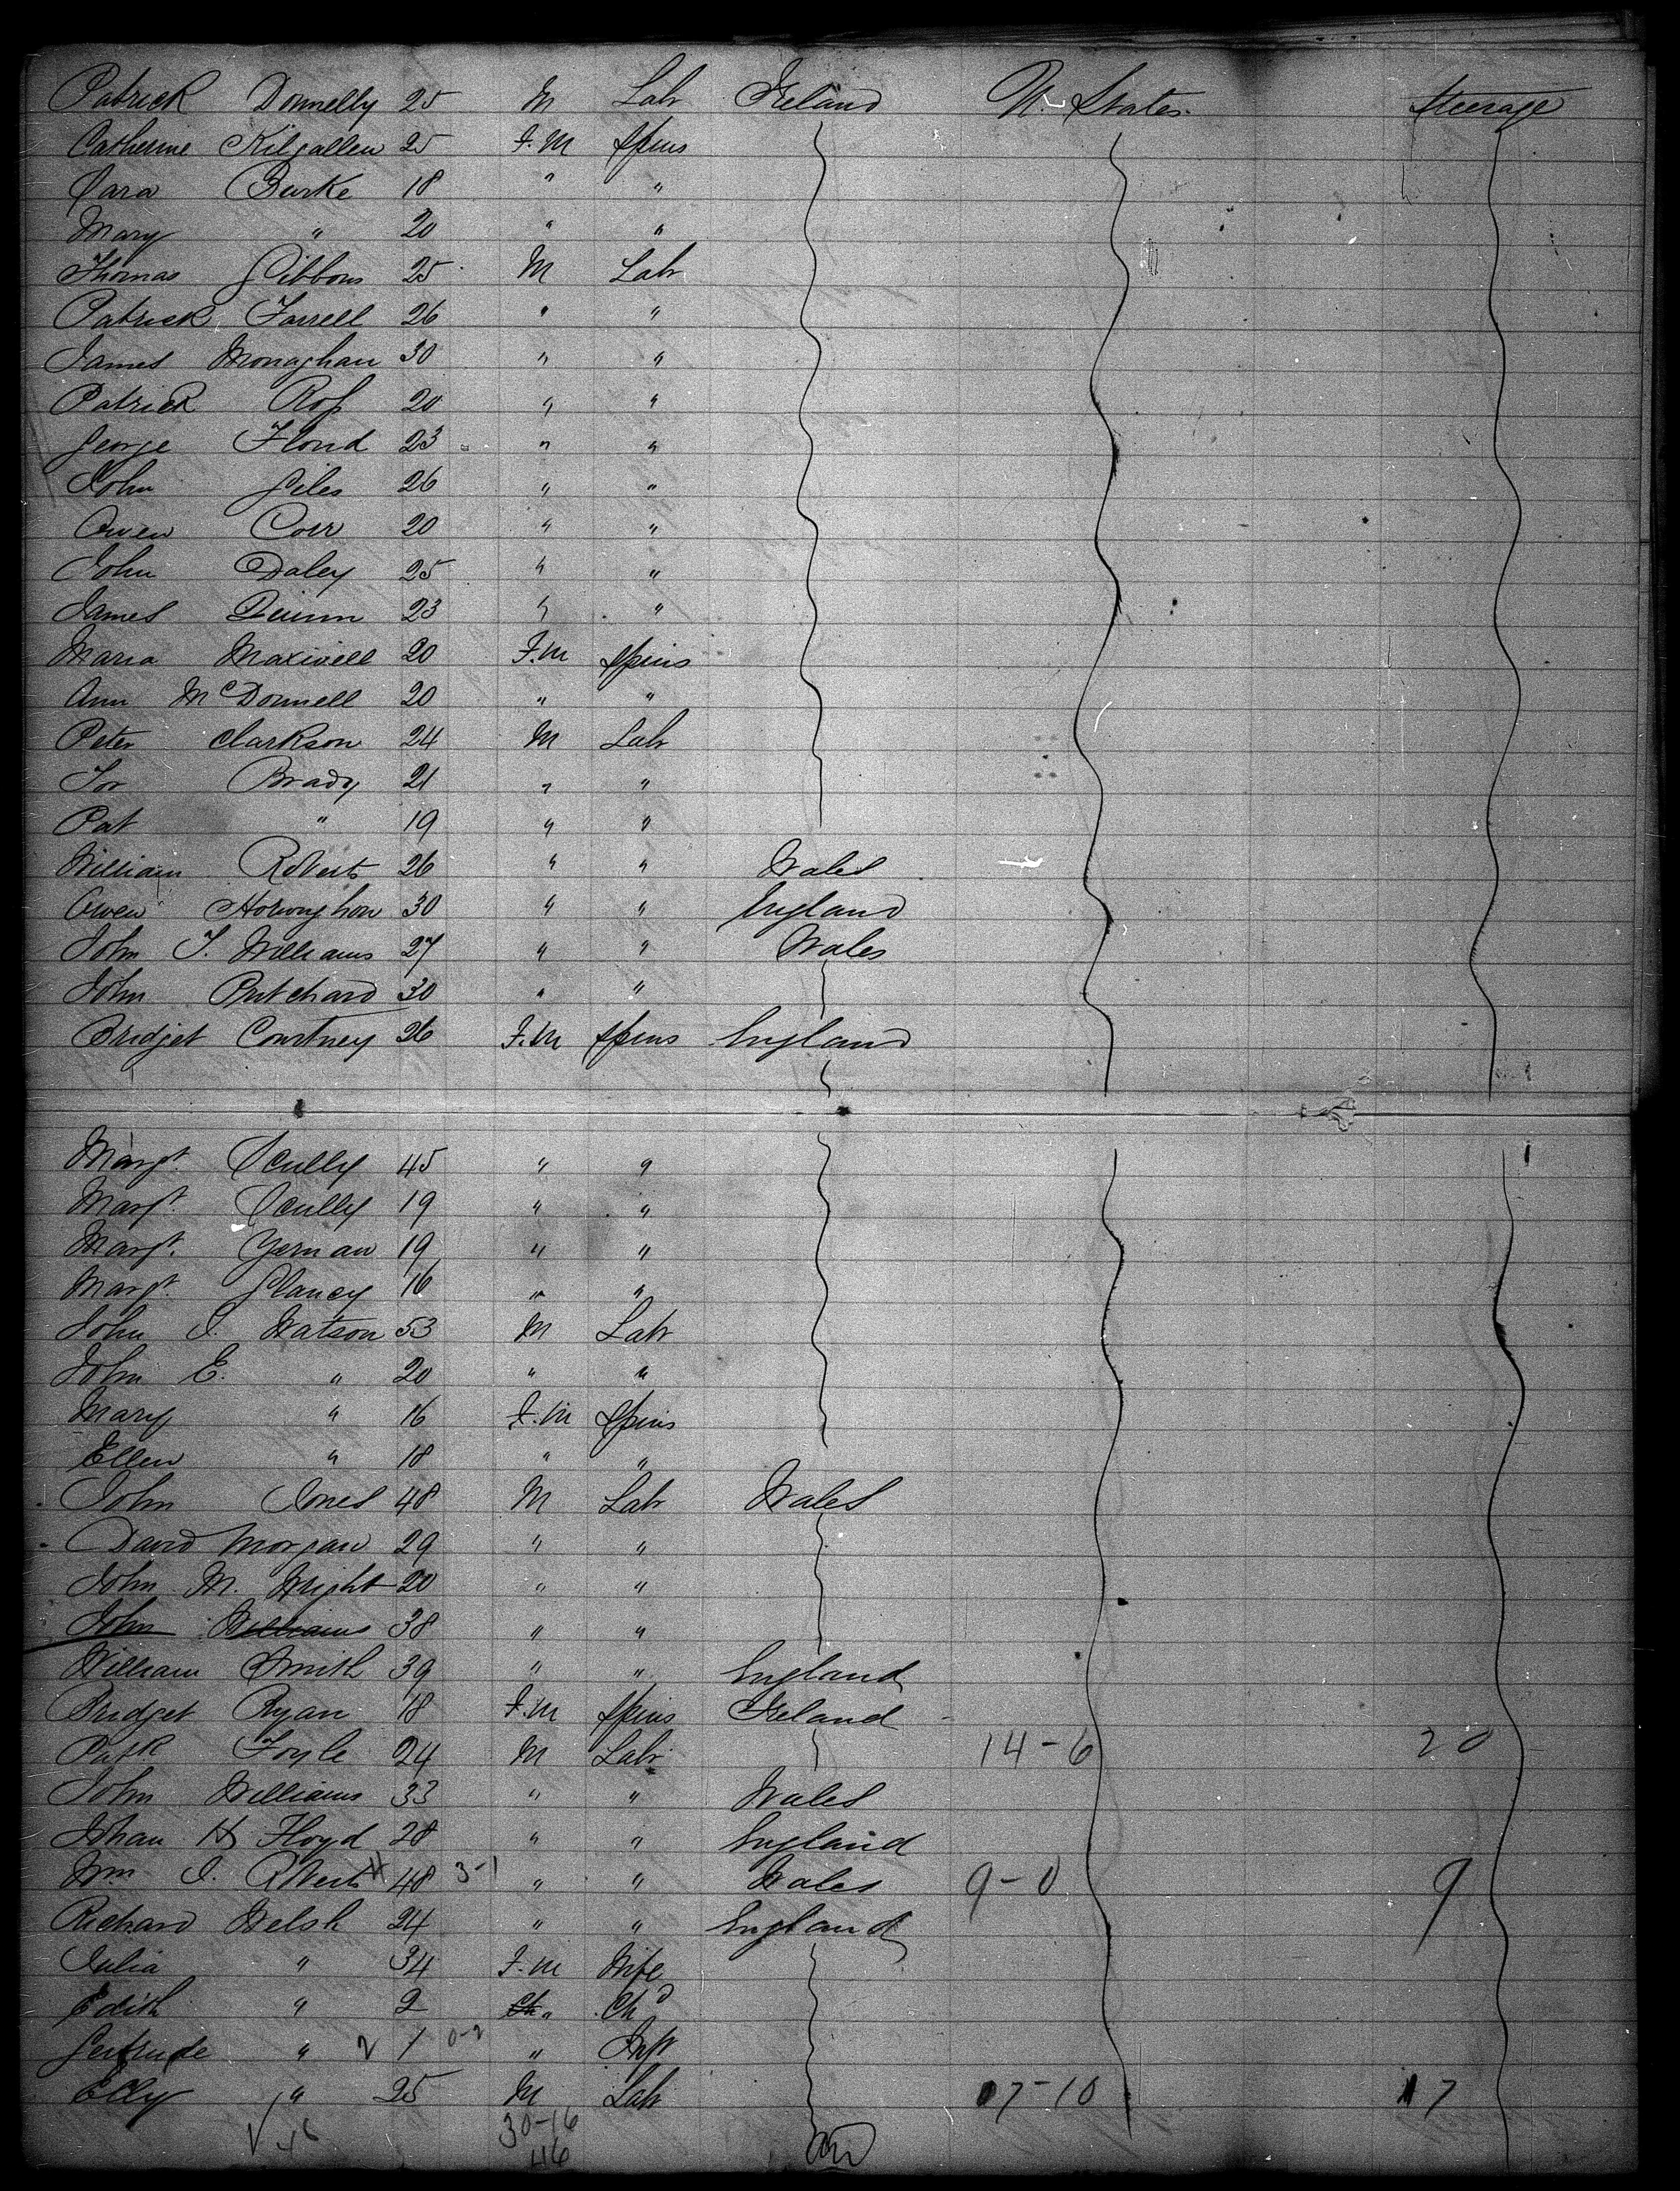 Patrick Donnelly 25 M Labr Ireland U. States Steerage
Catherine Kilgallen 25 F.M Spins
Sara Burke 18 " "
Mary " 20 " "
Thomas Gibbons 25 M Labr
Patrick Farrell 26 " "
James Monaghan 30 " "
Patrick Ross 20 " "
George Flond 23 " "
John Giles 26 " "
Owen Corr 20 " "
John Daley 25 " "
James Quinn 23 " "
Maria Maxwell 20 F.M Spins
Ann McDonnell 20 " "
Peter Clarkson 24 M Labr
Brady 21 " "
Pat " 19 " "
William Roberts 26 " " Wales
Owen 30 " " England
John T. Williams 27 " " Wales
John Pritchard 30 " "
Bridget Courtney 26 F.M Spins England
Margt. Scully 45 " "
Margt. Scully 19 " "
Margt. Yernan 19 " "
Margt. Glancy 16 " "
John J. Watson 53 M Labr
John E. " 20 " "
Mary " 16 F.M Spins
Ellen " 18 " "
John Jones 48 M Labr Wales
David Morgan 29 " "
John M. Wright 20 " "
John Williams 38 " "
William Smith 39 " " England
Bridget Ryan 18 F.M Spins Ireland
Patk Foyle 24 M Labr 14-6 20
John Williams 33 " " Wales
Johan H Floyd 28 " " England
Wm J. Roberts 48 3-1 " " Wales 9-0 9
Richard Welsh 24 " " England
Julia " 34 F.M Wife
Edith " 2 Ch " Chd
Gertrude " 2 1 0-2 " Inft
Elly " 25 M Labr 17-10 17
46 30-16
46